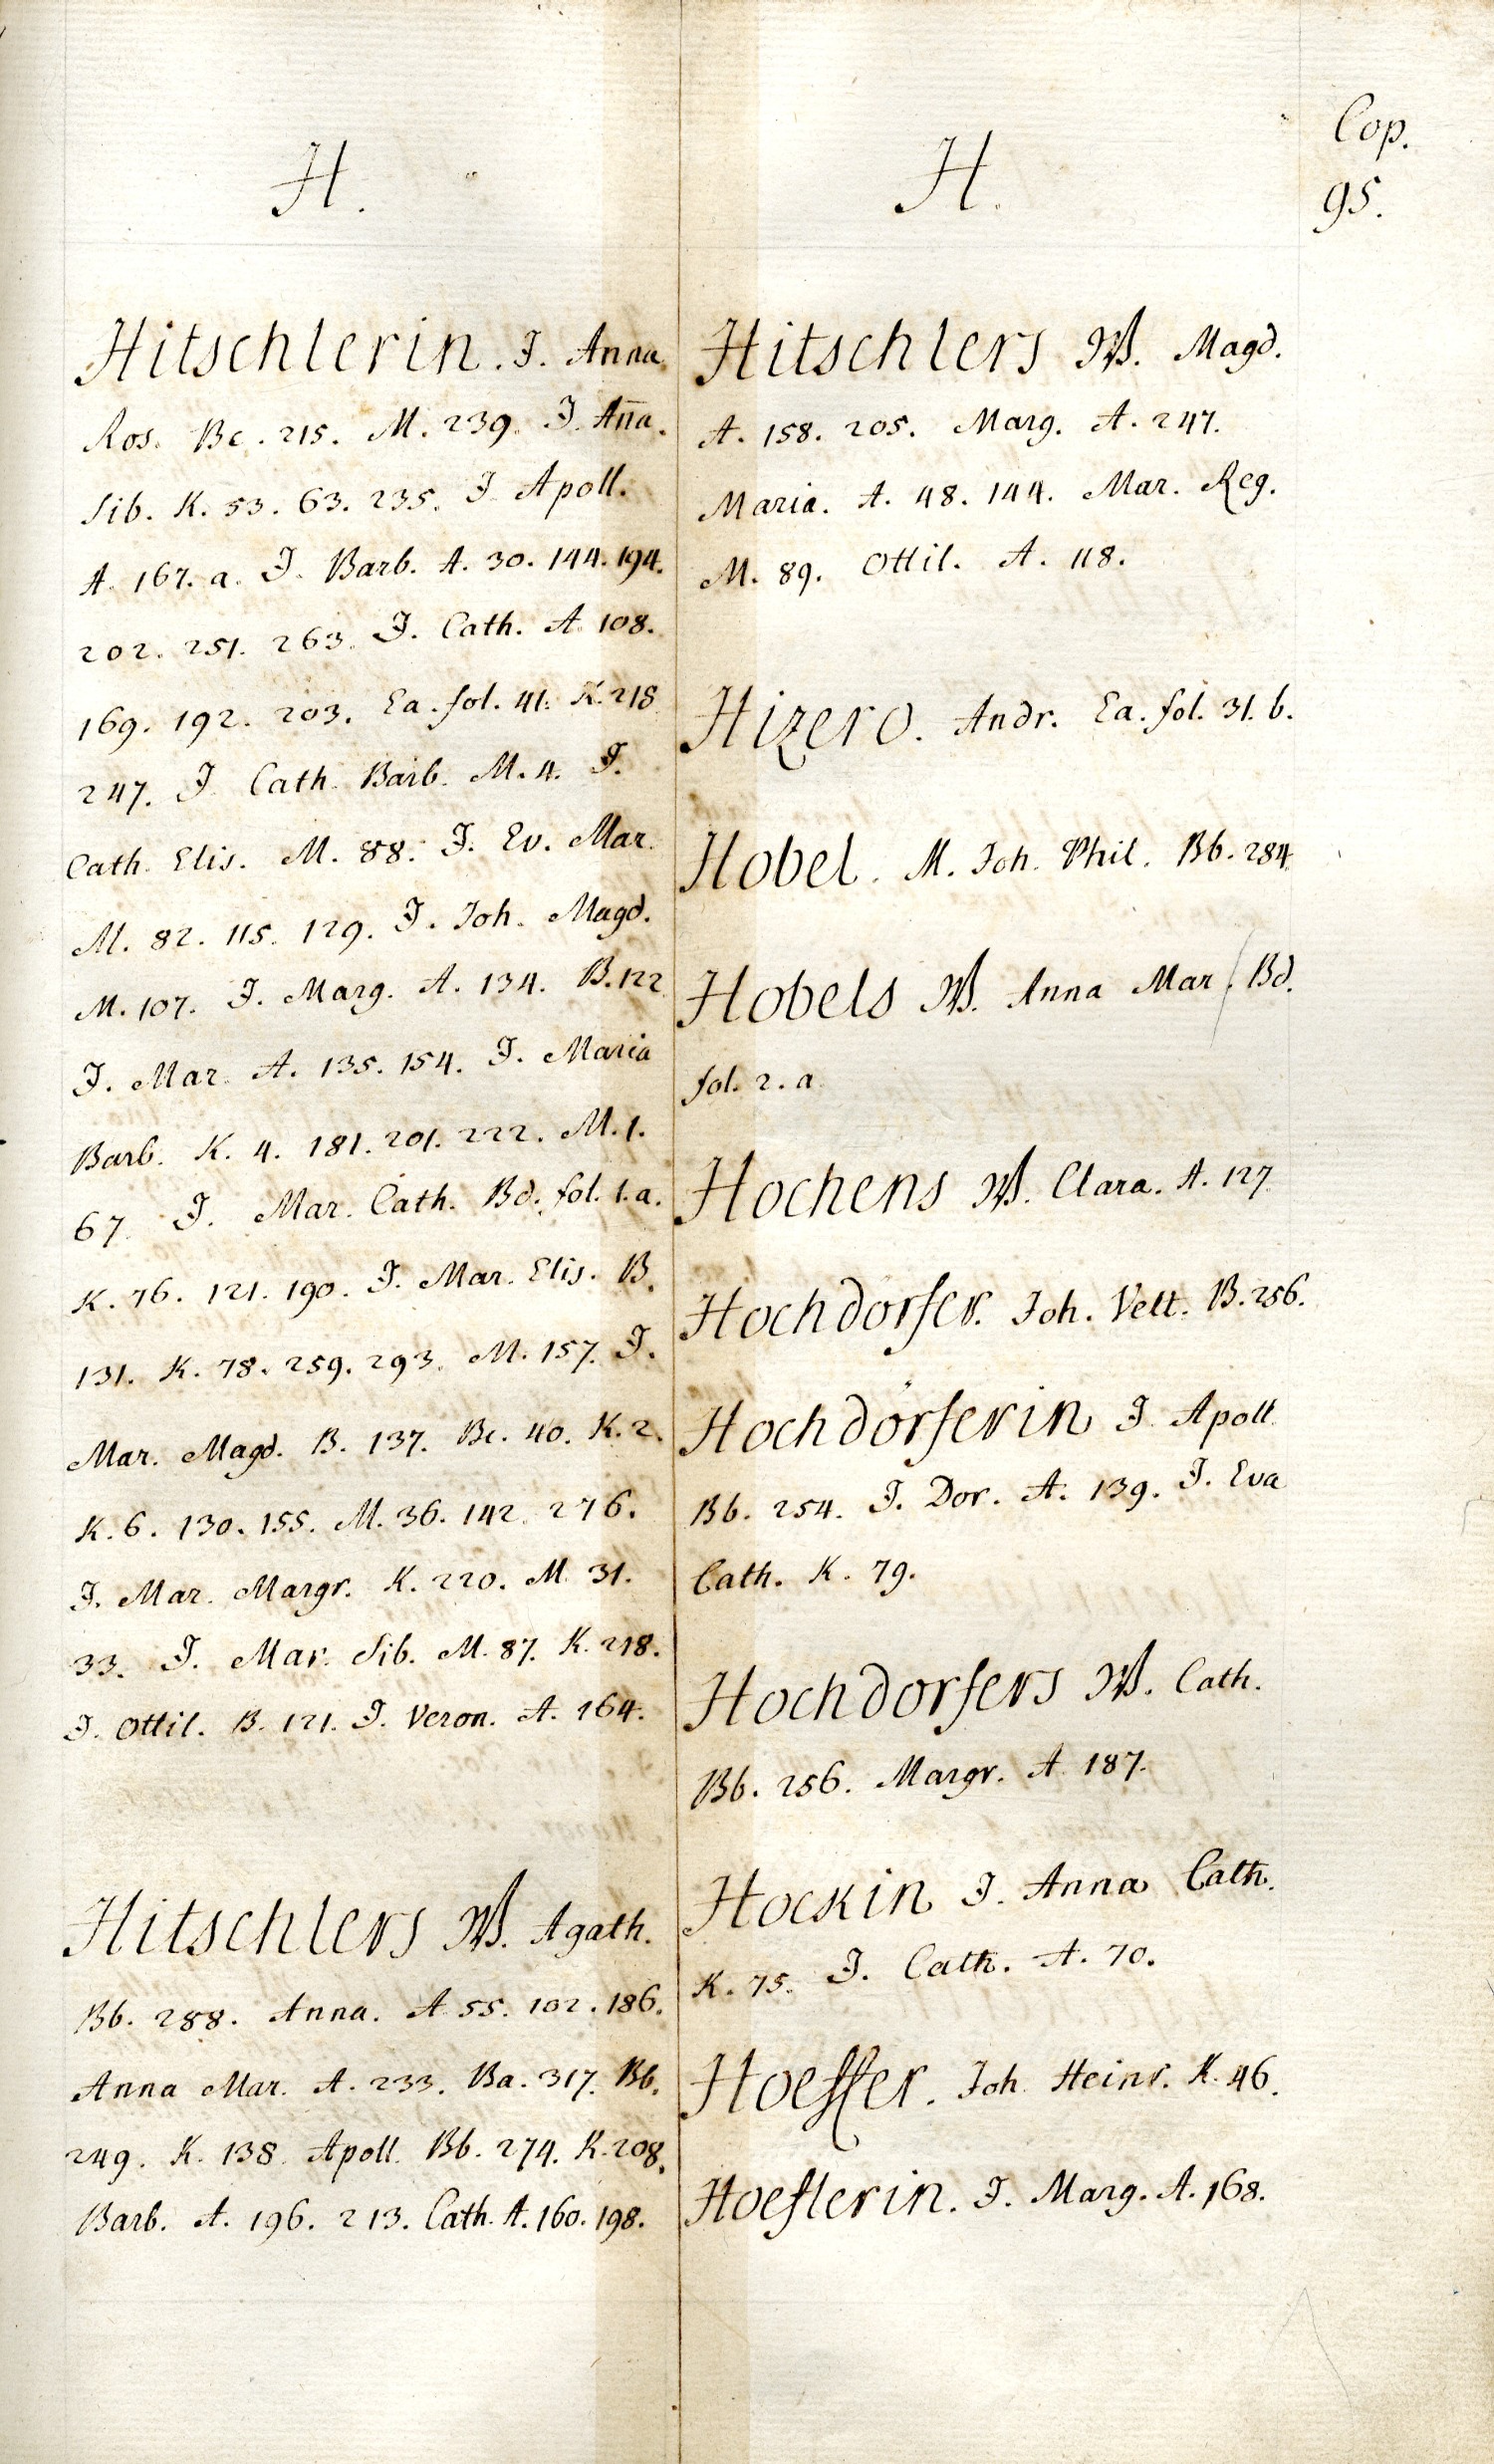 Cop.
95.
H.
Hitschlerin. J. Anna
Ros. Bc. 215. M. 239. J. An̄a.
Sib. K. 53. 63. 235. J. Apoll.
A. 167. a. J. Barb. A. 30. 144. 194.
202. 251. 263. J. Cath. A. 108.
169. 192. 203. Ea. fol. 41. K. 218
247. J. Cath. Barb. M. 4. J.
Cath. Elis. M. 88. J. Ev. Mar.
M. 82. 115. 129. J. Joh. Magd.
M. 107. J. Marg. A. 134. B. 122
J. Mar. A. 135. 154. J. Maria
Barb. K. 4. 181. 201. 222. M. 1.
67. J. Mar. Cath. Bd. fol. 1. a.
K. 76. 121. 190. J. Mar. Elis. B.
131. K. 78. 259. 293. M. 157. J.
Mar. Magd. B. 137. Bc. 40. K. 2.
K. 6. 130. 155. M. 36. 142. 276.
J. Mar. Margr. K. 220. M. 31.
33. J. Mar. Sib. M. 87. K. 218.
J. Ottil. B. 121. J. Veron. A. 164.
Hitschlers W. Agath.
Bb. 288. Anna. A. 55. 102. 186.
Anna Mar. A. 233. Ba. 317. Bb.
249. K. 138. Apoll. Bb. 274. K. 208.
Barb. A. 196. 213. Cath. A. 160. 198.
H.
Hitschlers W. Magd.
A. 158. 205. Marg. A. 247.
Maria. A. 48. 144. Mar. Reg.
M. 89. Ottil. A. 118.
Hizero. Andr. Ea. fol. 31. b.
Hobel. M. Joh. Phil. Bb. 284
Hobels W. Anna Mar. Bd.
fol. 2. a
Hochens W. Clara. A. 127
Hochdorfer. Joh. Velt. B. 256.
Hochdörferin J. Apoll.
Bb. 254. J. Dor. A. 139. J. Eva
Cath. K. 79.
Hochdorfers W. Cath.
Bb. 256. Margr. A. 187.
Hockin J. Anna Cath.
K. 75. J. Cath. A. 70.
Hoeffer. Joh. Heinr. K. 46.
Hoeflerin. J. Marg. A. 168.